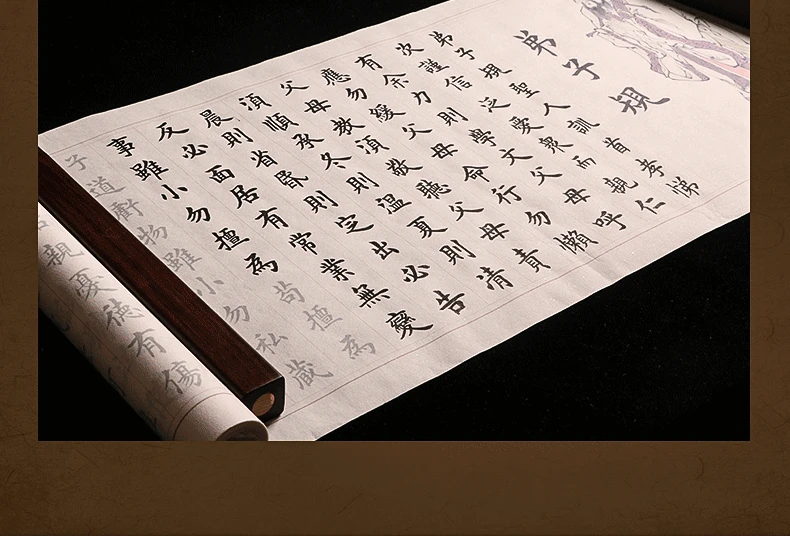 弟子規
弟子規聖人訓首孝悌
次謹信泛愛眾而親仁
有余力則學文父母呼
應勿緩父母命行勿懶
父母教須敬聽父母責
須順承冬則溫夏則清
晨則省昏則定出必告
反必面居有常業無變
事雖小勿擅為苟擅為
子道虧物雖小勿私藏
親憂德有傷